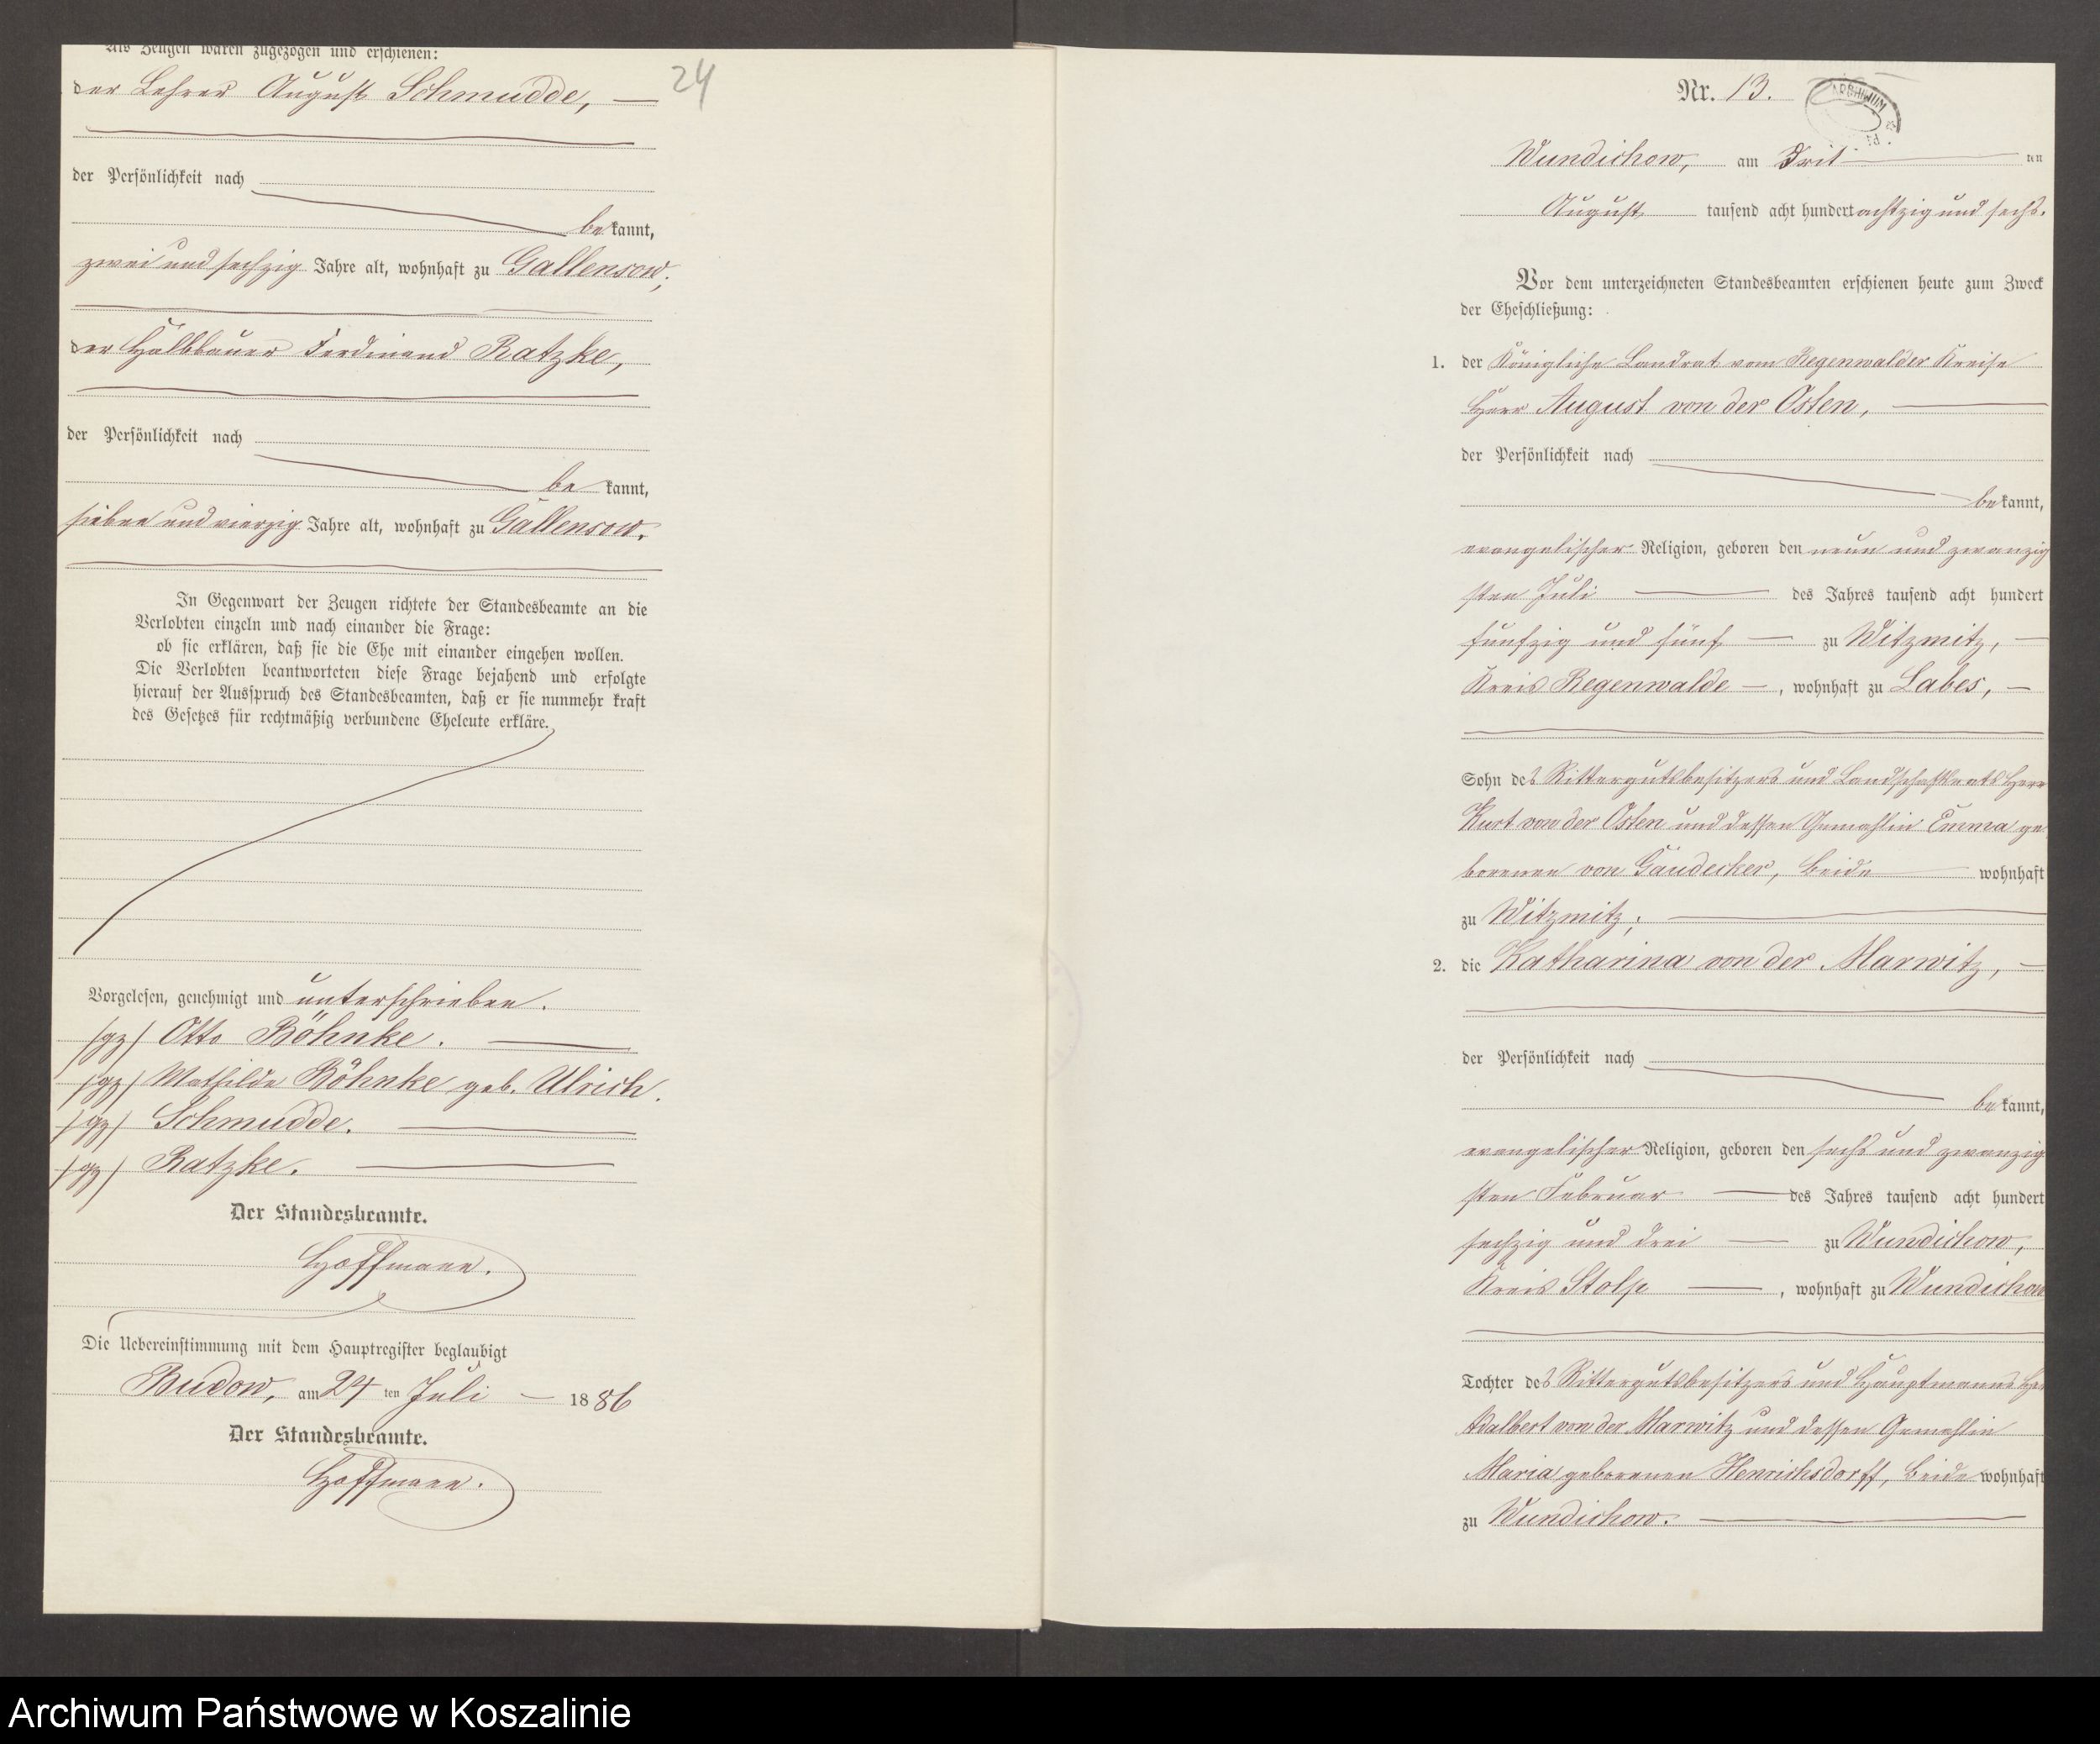 Als Zeugen waren zugezogen und erschienen:
der Lehrer August Schmudde,
24
der Persönlichkeit nach
bekannt,
zwei und sechzig Jahre alt, wohnhaft zu Gallensow;
der Halbbauer Ferdinand Ratzke,
der Persönlichkeit nach
be kannt,
sieben und vierzig Jahre alt, wohnhaft zu Gallensow.
In Gegenwart der Zeugen richtete der Standesbeamte an die
Verlobten einzeln und nach einander die Frage:
ob sie erklären, daß sie die Ehe mit einander eingehen wollen.
Die Verlobten beantworteten diese Frage bejahend und erfolgte
hierauf der Ausspruch des Standesbeamten, daß er sie nunmehr kraft
des Gesetzes für rechtmäßig verbundene Eheleute erkläre.
Vorgelesen, genehmigt und unterschrieben.
/gz/ Otto Böhnke.
/gz/ Mathilde Böhnke geb. Ulrich.
/gz/ Schmudde.
/gz/ Ratzke.
Der Standesbeamte.
Hoffmann.
Die Uebereinstimmung mit dem Hauptregister beglaubigt
Budow, am 24 ten Juli 1886
Der Standesbeamte.
Hoffmann.
Nr. 13.
ARCHIWUM
Wundichow, am Drit ten
August tausend acht hundert achtzig und sechs.
Vor dem unterzeichneten Standesbeamten erschienen heute zum Zweck
der Eheschließung:
1. der Königliche Landrat vom Regenwalder Kreise
Herr August von der Osten,
der Persönlichkeit nach
bekannt,
evangelischer Religion, geboren den neun und zwanzig
sten Juli des Jahres tausend acht hundert
fünfzig und fünf zu Witzmitz,
Kreis Regenwalde, wohnhaft zu Labes,
Sohn des Rittergutsbesitzers und Landschaftsrats Herr
Kurt von der Osten und dessen Gemahlin Emma ge
borenen von Gaudecker, beide wohnhaft
zu Witzmitz;
2. die Katharina von der Marwitz,
der Persönlichkeit nach
bekannt,
evangelischer Religion, geboren den sechs und zwanzig
sten Februar des Jahres tausend acht hundert
sechzig und drei zu Wundichow,
Kreis Stolp, wohnhaft zu Wundichow
Tochter des Rittergutsbesitzers und Hauptmanns
Adalbert von der Marwitz und dessen Gemahlin
Maria geborenen Henrichsdorff, beide wohnhaft
zu Wundichow.
Archiwum Państwowe w Koszalinie